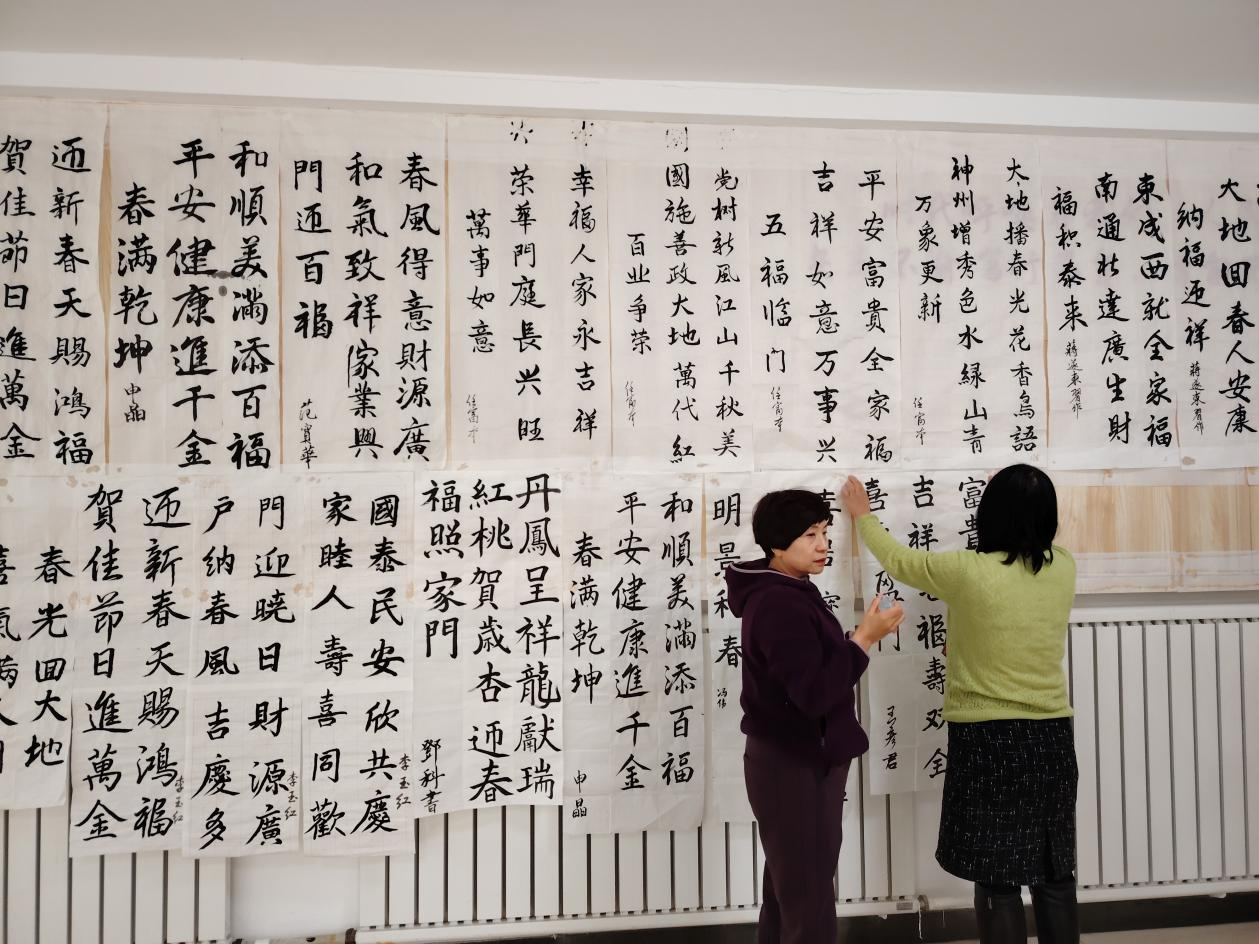 大地回春人安康
纳福迎祥
蒋逐东習作
東成西就全家福
南通北達廣生財
福积泰来
蒋逐東習作
大地播春光花香鳥語
神州增秀色水緑山青
万象更新
任富本
平安富貴全家福
吉祥如意万事兴
五福临门
任富本
党树新風江山千秋美
國施善政大地萬代紅
百业争荣
任富本
幸福人家永吉祥
荣華門庭長兴旺
萬事如意
任富本
春風得意財源廣
和氣致祥家業興
門迎百福
范寶華
和順美滿添百福
平安健康進千金
春满乾坤
申晶
迎新春天賜鴻福
賀佳節日進萬金
富貴
吉祥 福壽双全
喜 門
王彦君
明景和春
冯伟
和順美滿添百福
平安健康進千金
春满乾坤
申晶
丹鳳呈祥龍獻瑞
紅桃賀歲杏迎春
福照家門
鄧科書
國泰民安欣共慶
家睦人壽喜同歡
李玉红
門迎曉日財源廣
户納春風吉慶多
李玉红
迎新春天賜鴻福
賀佳節日進萬金
李玉红
春光回大地
喜氣满人